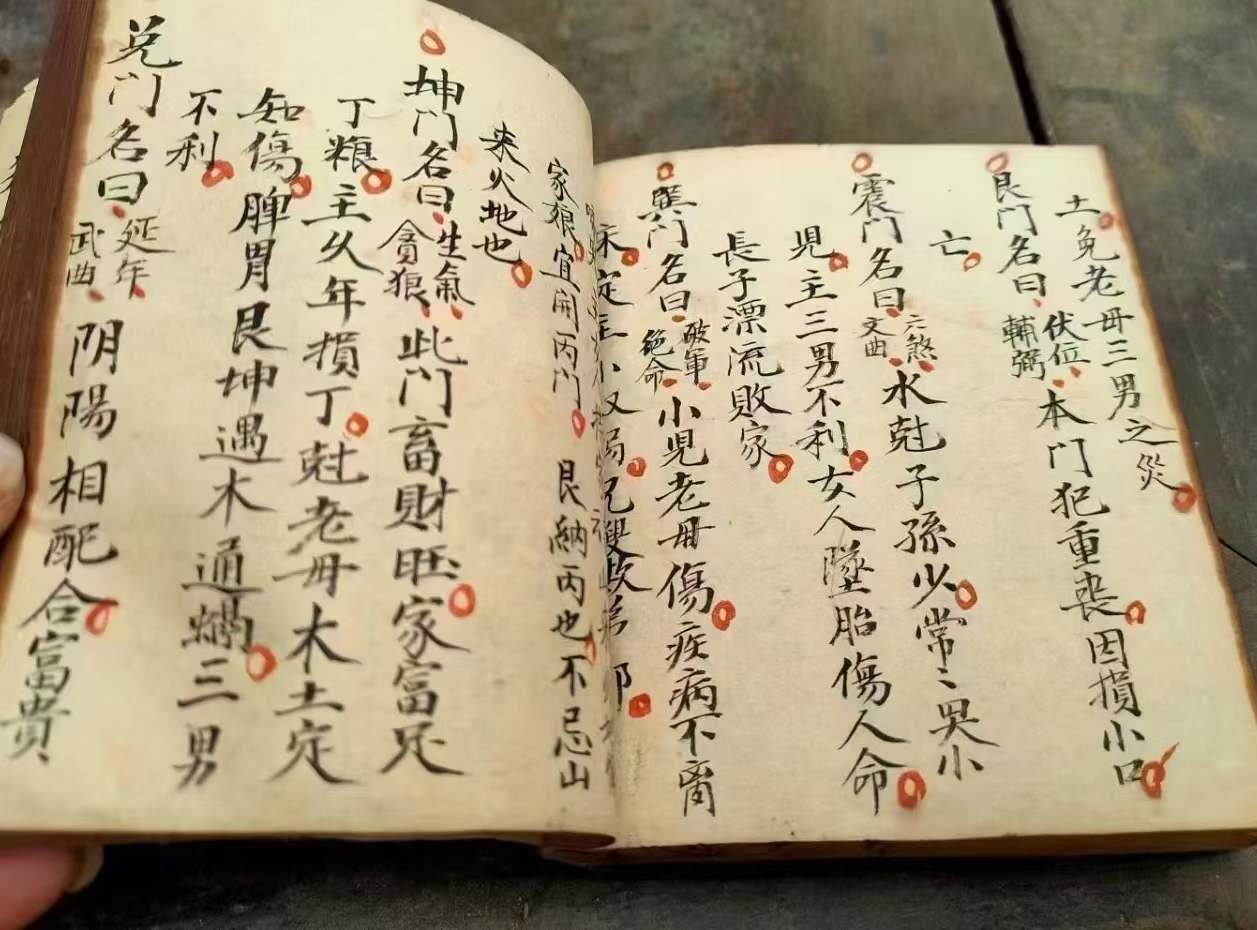 土免老母三男之災
艮門名曰伏位輔弼本门犯重丧因損小口
亡
震门名曰六煞文曲水尅子孫少常〻哭小
児主三男不利女人墜胎傷人命
長子漂流敗家
巽门名曰破軍絶命小児老母傷疾病不离
床定主小
家狼宜開丙门艮納丙也不忌山
来火地也
坤门名曰生氣貪狼此门畜財旺家富足
丁粮主久年損丁尅老母木土定
知傷脾胃艮坤遇木通三男
不利
兑门名曰延年武曲阴陽相配合富貴